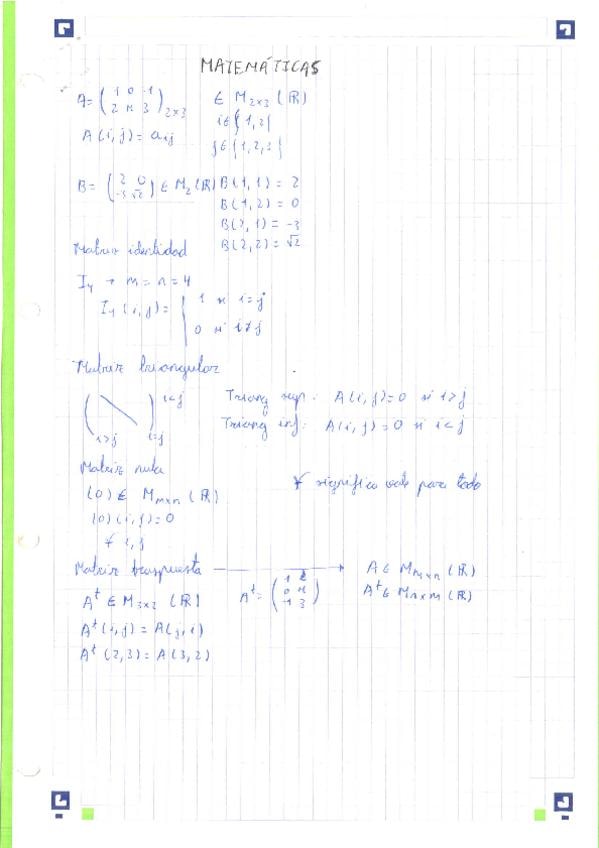 MATEMÁTICAS
A = ( 1 0 -1 ; 2 π 3 )₂ₓ₃ ∈ M₂ₓ₃ (ℝ)
i ∈ {1,2}
A(i,j) = aij
j ∈ {1,2,3}
B = ( 2 0 ; -3 √2 ) ∈ M₂(ℝ) B(1,1) = 2
B(1,2) = 0
B(2,1) = -3
B(2,2) = √2
Matriz identidad
I₄ → m = n = 4
I₄(i,j) = { 1 si i=j
0 si i≠j
Matriz triangular
i<j
i>j i=j
Triang sup: A(i,j)=0 si i>j
Triang inf: A(i,j)=0 si i<j
Matriz nula
(0) ∈ Mmxn (ℝ)
(0)(i,j)=0
∀ i,j
∀ significa vale para todo
Matriz traspuesta → A ∈ Mmxn (ℝ)
Aᵗ ∈ Mnxm (ℝ)
Aᵗ ∈ M₃ₓ₂ (ℝ) Aᵗ = ( 1 2 ; 0 π ; -1 3 )
Aᵗ(i,j) = A(j,i)
Aᵗ(2,3) = A(3,2)